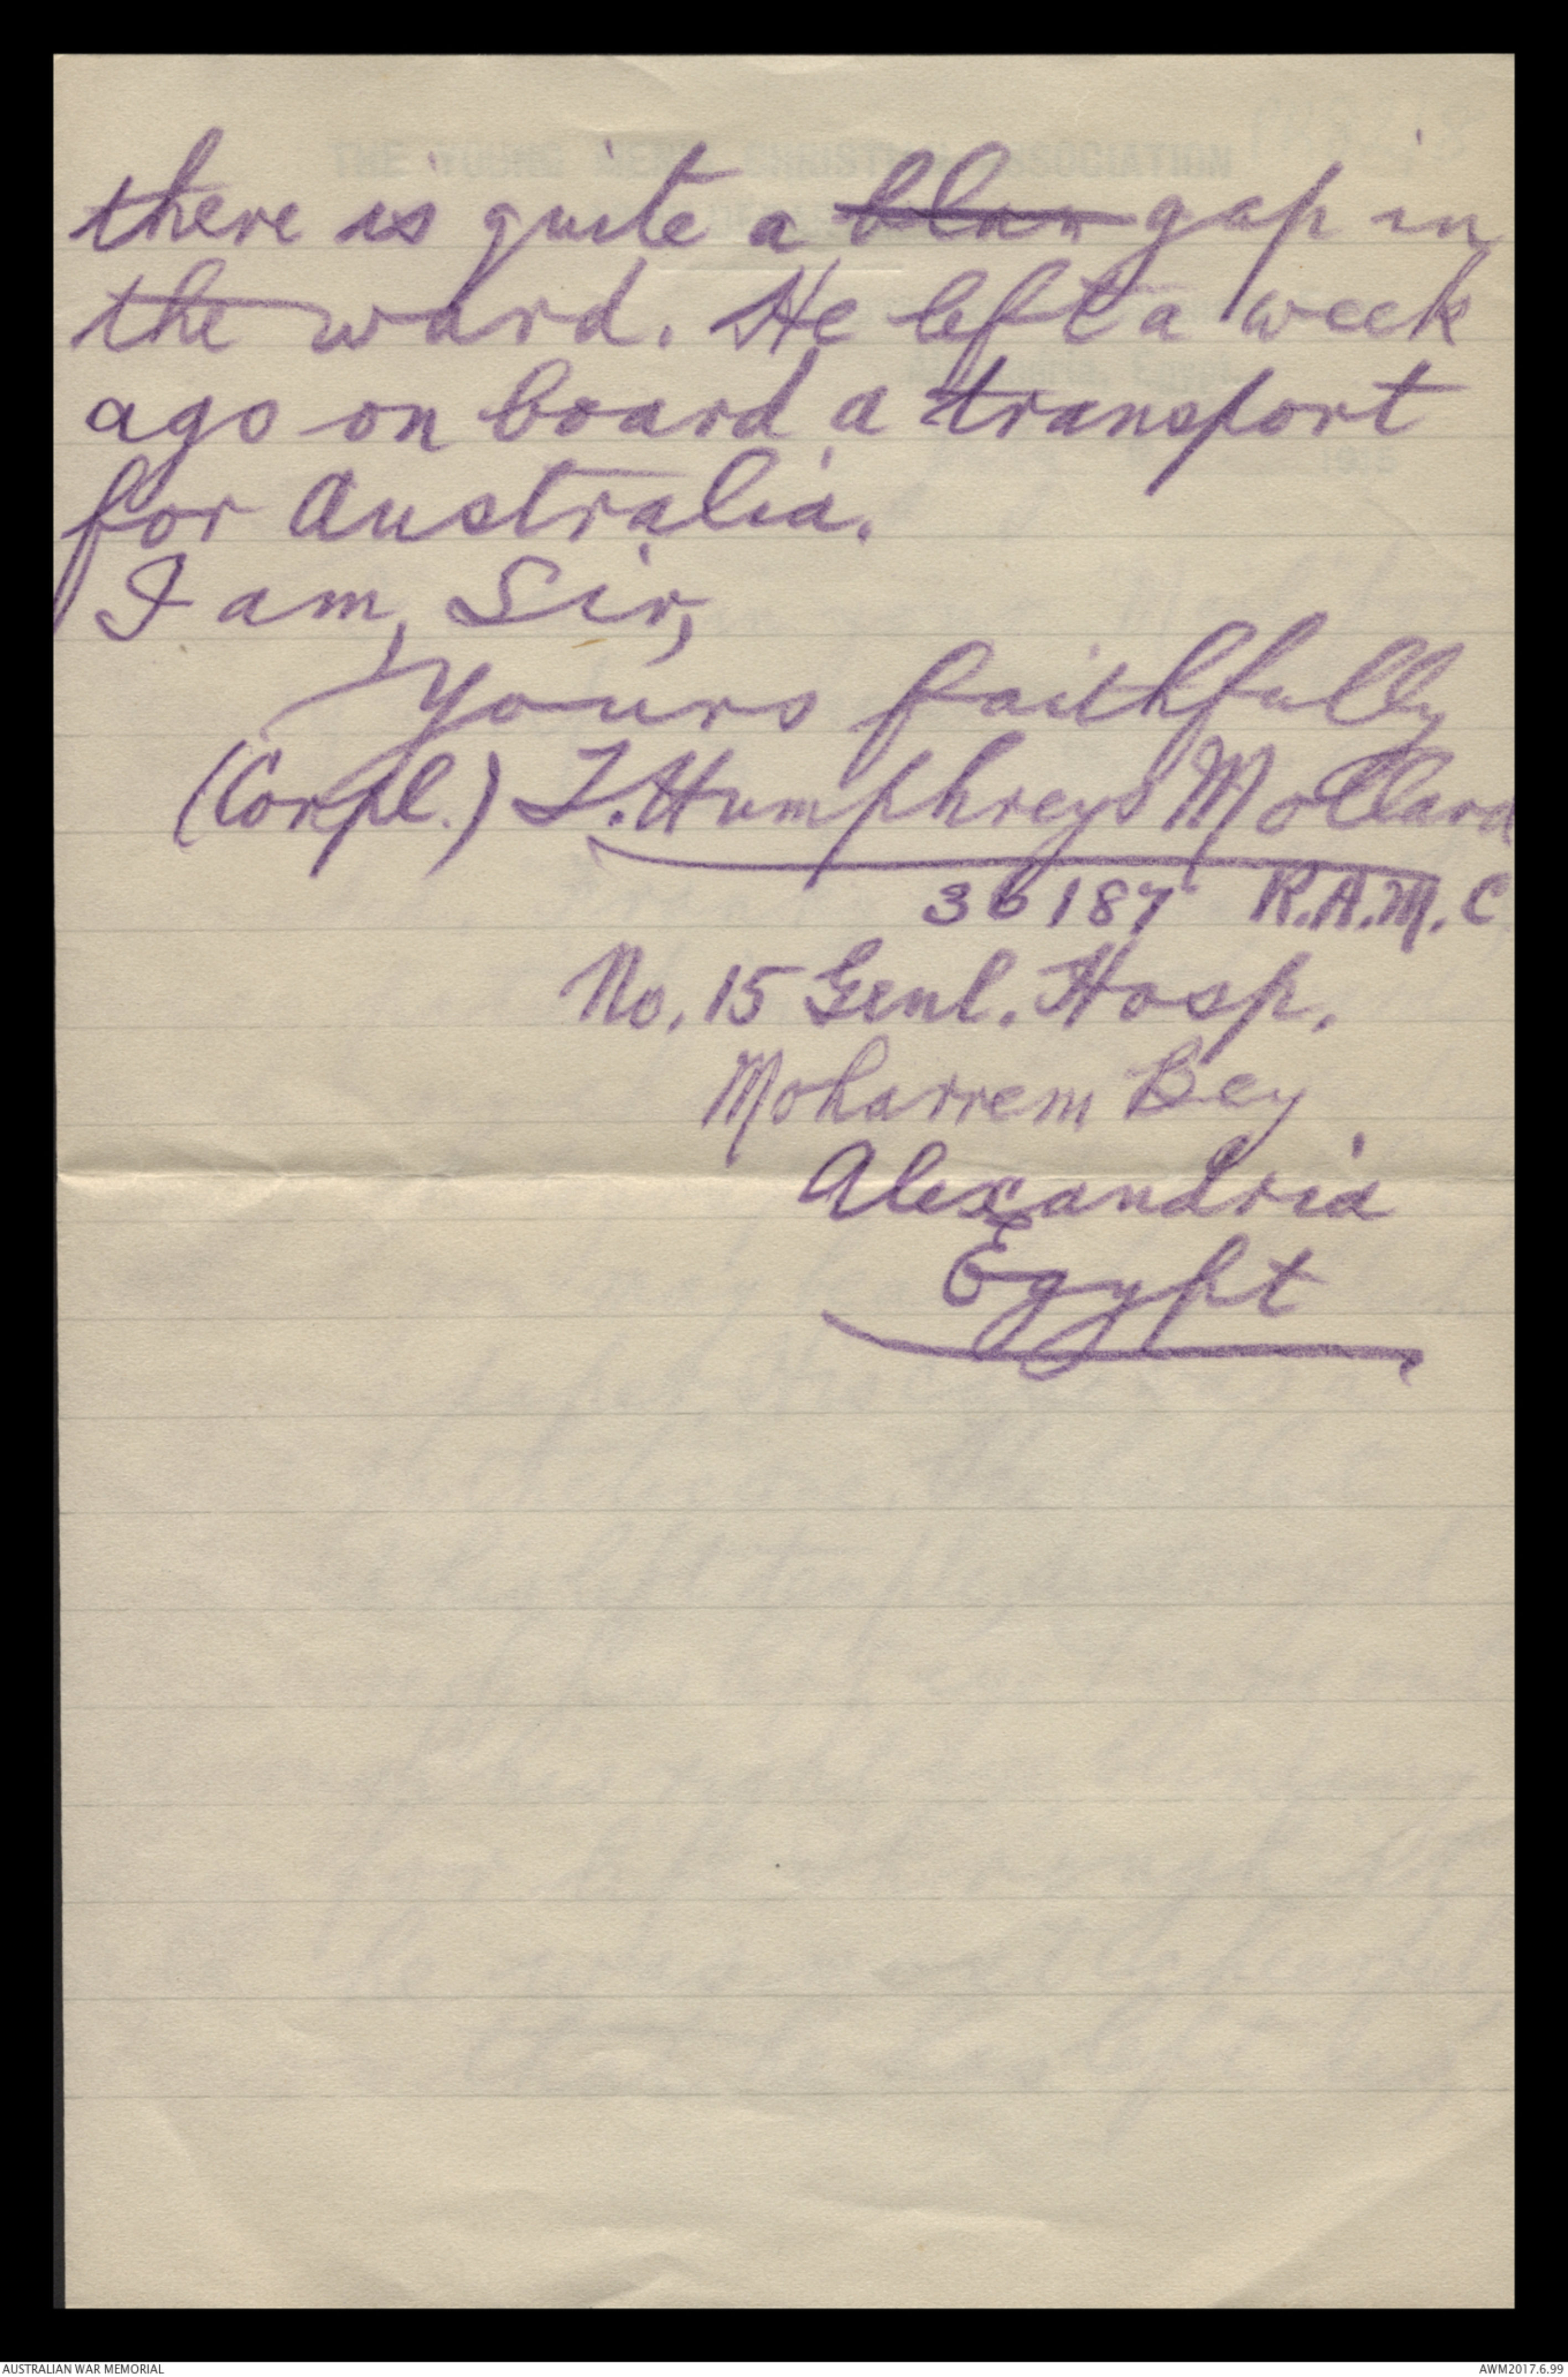 there is quite a blan gap in
the ward. He left a week
ago on board a transport
for Australia.
I am, Sir,
Yours faithfully
(Corpl.) T. Humphreys Mollard
36187 R.A.M.C
No. 15 Genl. Hosp.
Moharrem Bey
Alexandria
Egypt
AUSTRALIAN WAR MEMORIAL
AWM2017.6.99